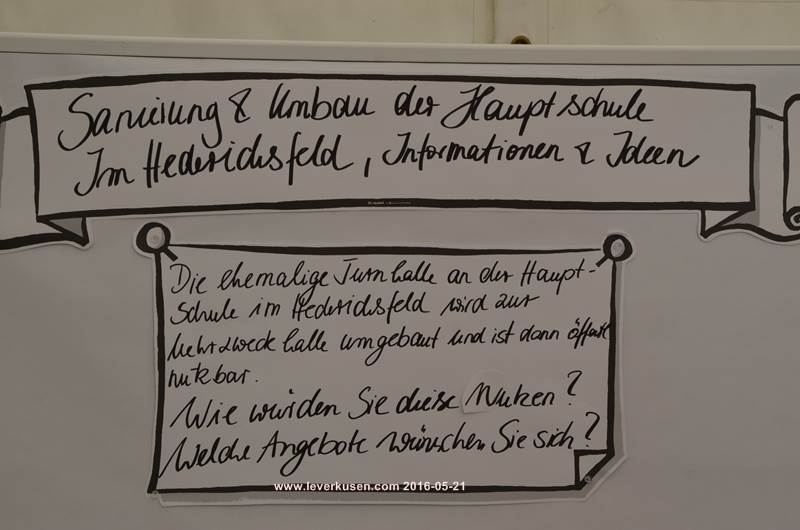 Sanierung & Umbau der Hauptschule
Im Hederichsfeld, Informationen & Ideen
Die ehemalige Turnhalle an der Haupt-
schule im Hederichsfeld wird zur
Mehrzweckhalle umgebaut und ist dann öffentl.
nutzbar.
Wie würden Sie diese Nutzen?
Welche Angebote wünschen Sie sich?
www.leverkusen.com 2016-05-21